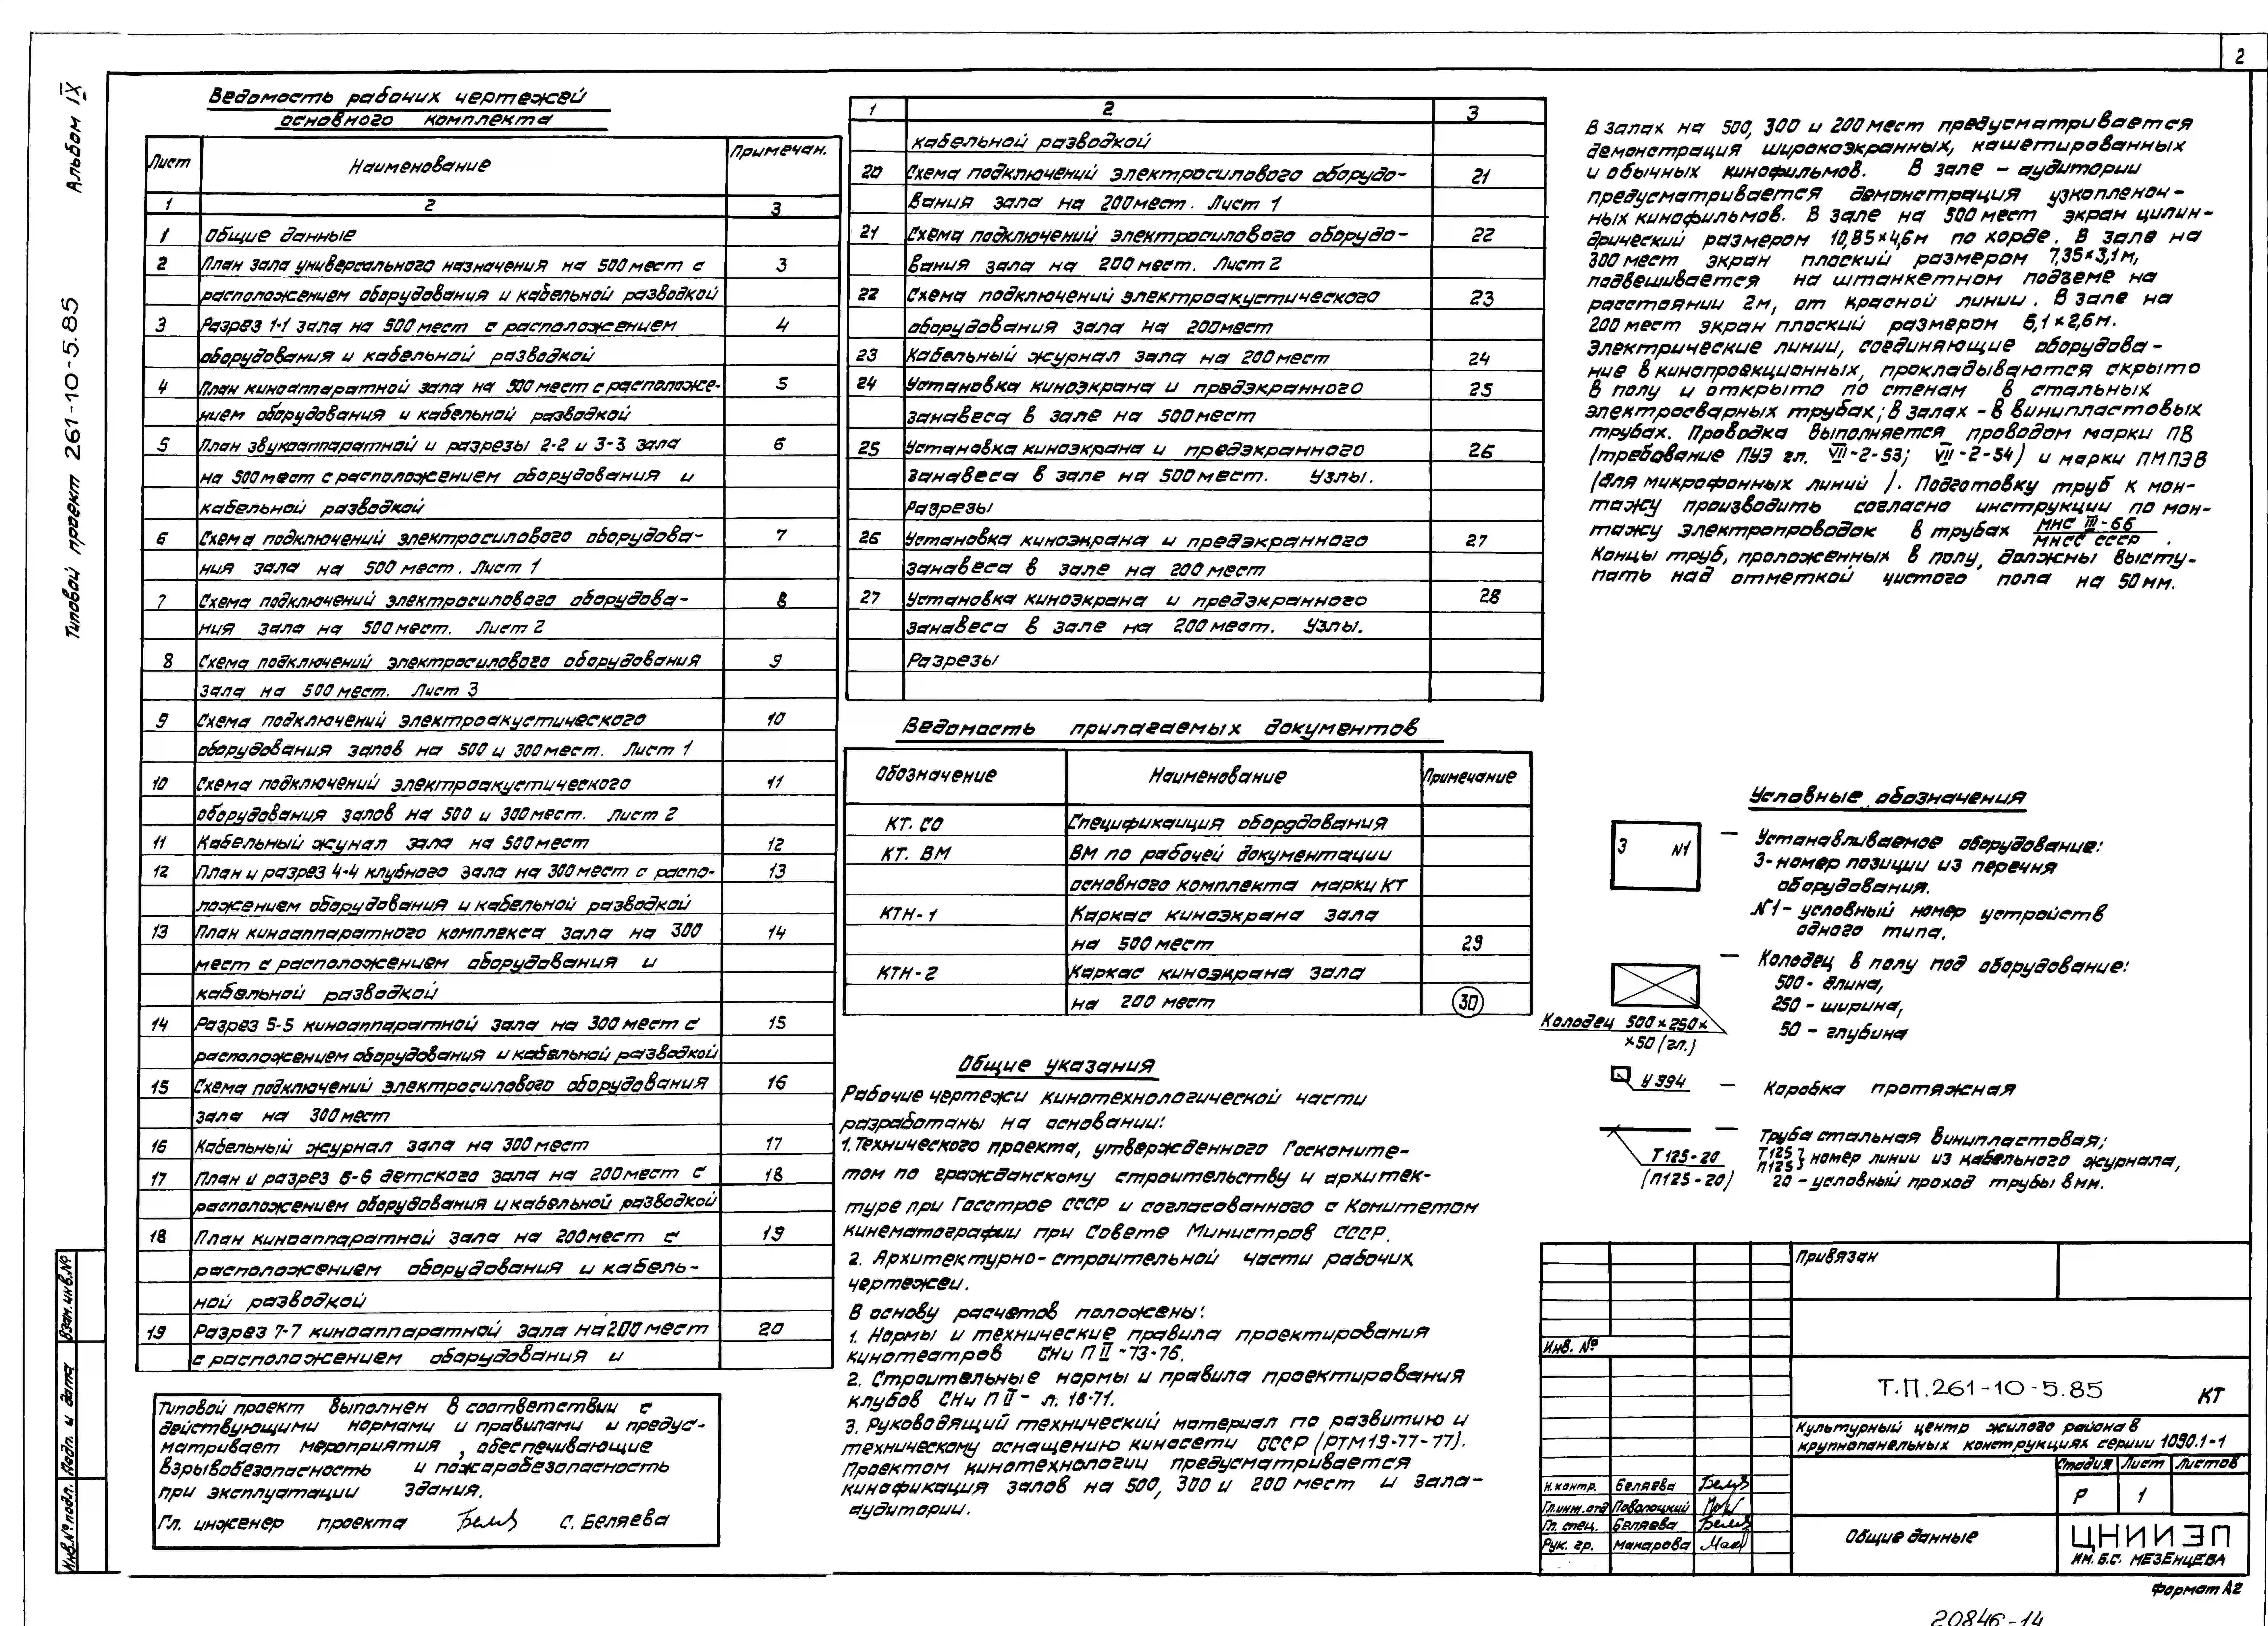 2
Альбом IX
Типовой проект 261-10-5.85
Ведомость рабочих чертежей
основного комплекта
Лист Наименование Примечан.
1 2 3
1 Общие данные
2 План зала универсального назначения на 500 мест с 3
расположением оборудования и кабельной разводкой
3 Разрез 1-1 зала на 500 мест с расположением 4
оборудования и кабельной разводкой
4 План киноаппаратной зала на 500 мест с расположе- 5
нием оборудования и кабельной разводкой
5 План звукоаппаратной и разрезы 2-2 и 3-3 зала 6
на 500 мест с расположением оборудования и
кабельной разводкой
6 Схема подключений электросилового оборудова- 7
ния зала на 500 мест. Лист 1
7 Схема подключений электросилового оборудова- 8
ния зала на 500 мест. Лист 2
8 Схема подключений электросилового оборудования 9
зала на 500 мест. Лист 3
9 Схема подключений электроакустического 10
оборудования залов на 500 и 300 мест. Лист 1
10 Схема подключений электроакустического 11
оборудования залов на 500 и 300 мест. Лист 2
11 Кабельный жунал зала на 500 мест 12
12 План и разрез 4-4 клубного зала на 300 мест с распо- 13
ложением оборудования и кабельной разводкой
13 План киноаппаратного комплекса зала на 300 14
мест с расположением оборудования и
кабельной разводкой
14 Разрез 5-5 киноаппаратной зала на 300 мест с 15
расположением оборудования и кабельной разводкой
15 Схема подключений электросилового оборудования 16
зала на 300 мест
16 Кабельный журнал зала на 300 мест 17
17 План и разрез 6-6 детского зала на 200 мест с 18
расположением оборудования и кабельной разводкой
18 План киноаппаратной зала на 200 мест с 19
расположением оборудования и кабель-
ной разводкой
19 Разрез 7-7 киноаппаратной зала на 200 мест 20
с расположением оборудования и
Типовой проект выполнен в соответствии с
действующими нормами и правилами и предус-
матривает мероприятия, обеспечивающие
взрывобезопасность и пожаробезопасность
при эксплуатации здания.
Гл. инженер проекта С. Беляева
1 2 3
кабельной разводкой
20 Схема подключений электросилового оборудо- 21
вания зала на 200 мест. Лист 1
21 Схема подключений электросилового оборудо- 22
вания зала на 200 мест. Лист 2
22 Схема подключений электроакустического 23
оборудования зала на 200 мест
23 Кабельный журнал зала на 200 мест 24
24 Установка киноэкрана и предэкранного 25
занавеса в зале на 500 мест
25 Установка киноэкрана и предэкранного 26
занавеса в зале на 500 мест. Узлы.
Разрезы
26 Установка киноэкрана и предэкранного 27
занавеса в зале на 200 мест
27 Установка киноэкрана и предэкранного 28
занавеса в зале на 200 мест. Узлы.
Разрезы
Ведомость прилагаемых документов
Обозначение Наименование Примечание
КТ. СО Спецификаиция обордования
КТ. ВМ ВМ по рабочей документации
основного комплекта марки КТ
КТН-1 Каркас киноэкрана зала
на 500 мест 29
КТН-2 Каркас киноэкрана зала
на 200 мест 30
Общие указания
Рабочие чертежи кинотехнологической части
разработаны на основании:
1. Технического проекта, утвержденного Госкомите-
том по гражданскому строительству и архитек-
туре при Госстрое СССР и согласованного с Комитетом
кинематографии при Совете Министров СССР.
2. Архитектурно-строительной части рабочих
чертежеи.
В основу расчетов положены:
1. Нормы и технические правила проектирования
кинотеатров СНиП II-73-76.
2. Строительные нормы и правила проектирования
клубов СНиП II- л. 16-71.
3. Руководящий технический материал по развитию и
техническому оснащению киносети СССР (РТМ 19-77-77).
Проектом кинотехнологии предусматривается
кинофикация залов на 500, 300 и 200 мест и зала-
аудитории.
В залах на 500, 300 и 200 мест предусматривается
демонстрация широкоэкранных, кашетированных
и обычных кинофильмов. В зале - аудитории
предусматривается демонстрация узкопленоч-
ных кинофильмов. В зале на 500 мест экран цилин-
дрический размером 10,85×4,6м по хорде. В зале на
300 мест экран плоский размером 7,35×3,1м,
подвешивается на штанкетном подъеме на
расстоянии 2м, от красной линии. В зале на
200 мест экран плоский размером 6,1×2,6м.
Электрические линии, соединяющие оборудова-
ние в кинопроекционных, прокладываются скрыто
в полу и открыто по стенам в стальных
электросварных трубах; в залах - в винипластовых
трубах. Проводка выполняется проводом марки ПВ
(требование ПУЭ гл. VII-2-53; VII-2-54) и марки ПМПЭВ
(для микрофонных линий). Подготовку труб к мон-
тажу производить согласно инструкции по мон-
тажу электропроводок в трубах МНС III-66
МНСС СССР.
Концы труб, проложенных в полу, должны высту-
пать над отметкой чистого пола на 50мм.
Условные обозначения
3 N1 — Устанавливаемое оборудование:
3- номер позиции из перечня
оборудования.
N1- условный номер устройств
одного типа.
— Колодец в полу под оборудование:
500 - длина,
250 - ширина,
50 - глубина
Колодец 500×250×
×50 (гл.)
У994 — Коробка протяжная
— Труба стальная винипластовая;
Т125-20 Т125 П125 } номер линии из кабельного журнала,
(П125-20) 20 - условный проход трубы в мм.
Привязан
Инв. №
Т.П.261-10-5.85 КТ
Культурный центр жилого района в
крупнопанельных конструкциях серии 1090.1-1
Стадия Лист Листов
Р 1
Н. контр. Беляева
Гл.инж.отд Поволоцкий
Гл. спец. Беляева
Рук. гр. Макарова
Общие данные
ЦНИИЭП
ИМ. Б.С. МЕЗЕНЦЕВА
Формат А2
20846-14
Взам.инв.№
Подп. и дата
Инв.№ подл.